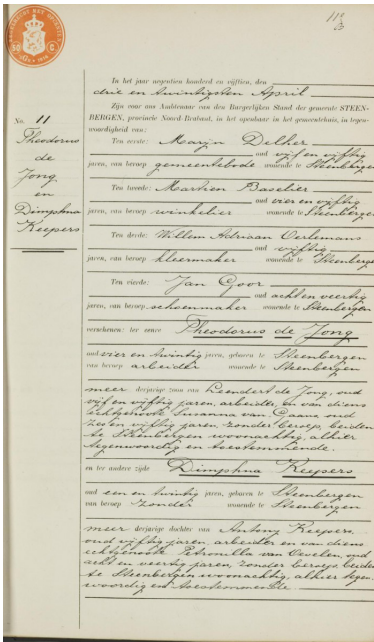 No. 11
Theodorus
de
Jong
en
Dimphna
Keepers
In het jaar negentien honderd en vijftien, den
drie en twintigsten April
Zijn voor ons Ambtenaar van den Burgerlijken Stand der gemeente STEEN-
BERGEN, provincie Noord-Brabant, in het openbaar in het gemeentehuis, in tegen-
woordigheid van:
Ten eerste: Marijn Delher
oud vijf en vijftig
jaren, van beroep gemeentebode wonende te Steenbergen
Ten tweede: Martien Baselier
oud vier en vijftig
jaren, van beroep winkelier wonende te Steenbergen
Ten derde: Willem Adriaan Oerlemans
oud vijftig
jaren, van beroep kleermaker wonende te Steenbergen
Ten vierde: Jan Goor
oud acht en veertig
jaren, van beroep schoenmaker wonende te Steenbergen
verschenen: ter eenre Theodorus de Jong
oud vier en twintig jaren, geboren te Steenbergen
van beroep arbeider wonende te Steenbergen
meer derjarige zoon van Leendert de Jong, oud
vijf en vijftig jaren, arbeider, en van diens
echtgenoote Susanna van Gaans, oud
zes en vijftig jaren, zonder beroep, beiden
te Steenbergen woonachtig, alhier
tegenwoordig en toestemmende.
en ter andere zijde Dimphna Keepers
oud een en twintig jaren, geboren te Steenbergen
van beroep zonder wonende te Steenbergen
meer derjarige dochter van Antony Keepers,
oud vijftig jaren, arbeider en van diens
echtgenoote Petronilla van Oevelen, oud
acht en veertig jaren, zonder beroep, beiden
te Steenbergen woonachtig, alhier tegen-
woordig en toestemmende